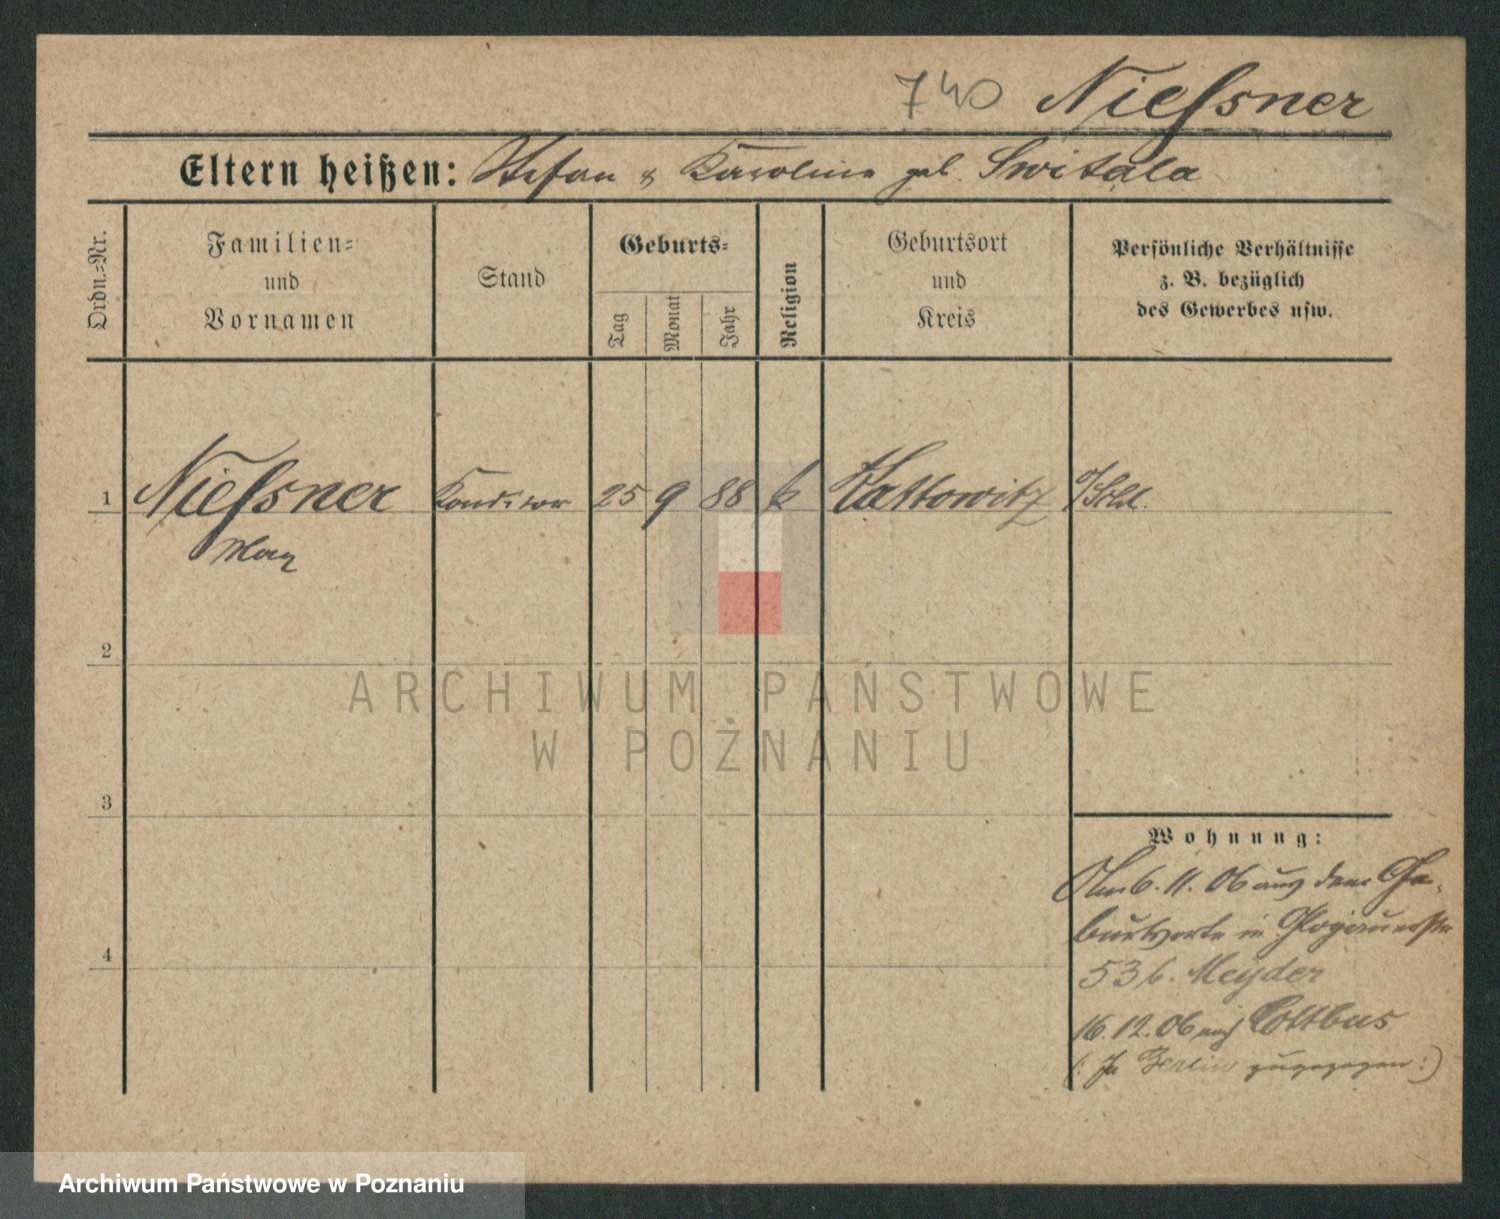 740 Nießner
Eltern heißen: Stefan & Karoline geb. Switala
Ordn.-Nr.
Familien-
und
Vornamen
Stand
Geburts-
Tag
Monat
Jahr
Religion
Geburtsort
und
Kreis
Persönliche Verhältnisse
z. B. bezüglich
des Gewerbes usw.
1 Nießner Konditor 25 9 88 k Kattowitz O/Schl.
Max
2
ARCHIWUM PAŃSTWOWE
W POZNANIU
3
Wohnung:
Am 6. 11. 06 aus dem Ge-
burtsorte in Glogauerstr
4
53 b. Meyder
16. 12. 06 nach Cottbus
(: In Berlin zugezogen :)
Archiwum Państwowe w Poznaniu